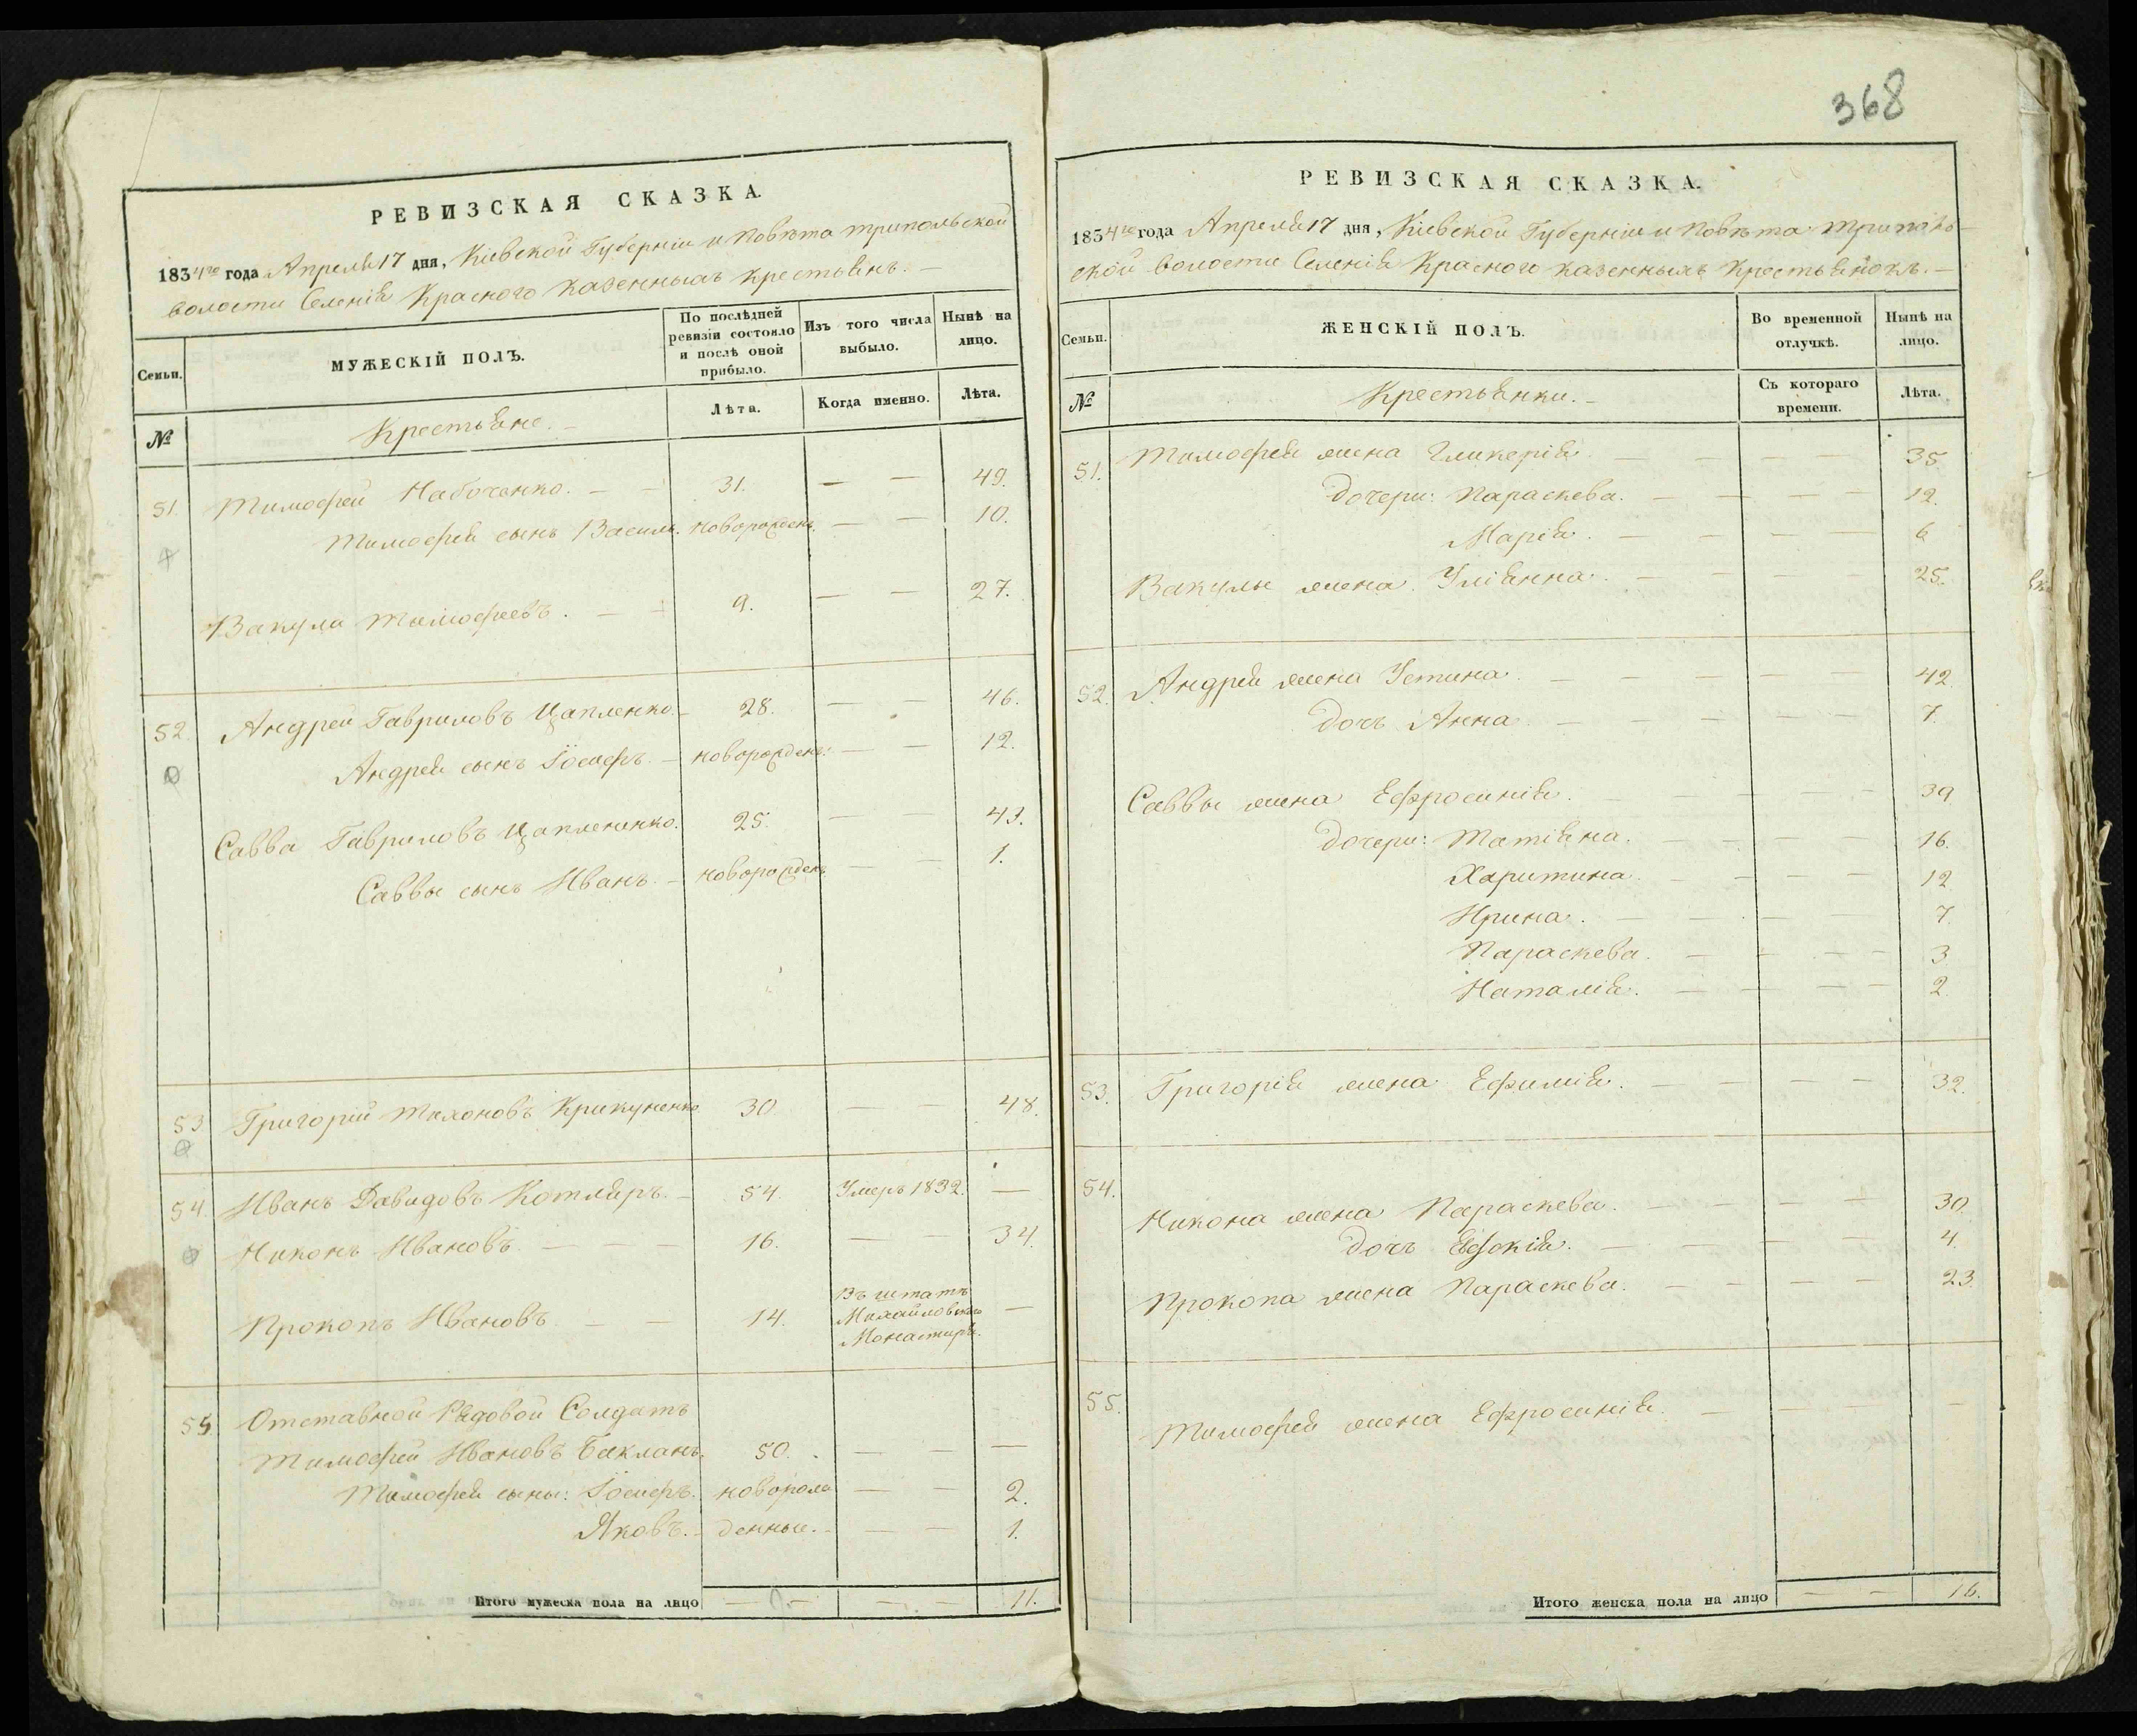 368
РЕВИЗСКАЯ СКАЗКА.
1834го года Апреля 17 дня, Кіевской Губерніи и Повѣта Трипольской
волости Селенія Красного казенныхъ крестьянъ.
Семьи.
МУЖЕСКІЙ ПОЛЪ.
По послѣдней ревизіи состояло и послѣ оной прибыло.
Изъ того числа выбыло.
Нынѣ на лицо.
№
Крестьяне.
Лѣта.
Когда именно.
Лѣта.
51. Тимофей Набоченко. — 31. — — 49.
Тимофея сынъ Василь. новорожденъ. — — 10.
Вакула Тимофеевъ. — 9. — — 27.
52. Андрей Гавриловъ Цапленко. — 28. — — 46.
Андрея сынъ Іосифъ. — новорожденъ: — — 12.
Савва Гавриловъ Цаплененко. 25. — — 43.
Саввы сынъ Иванъ. — новорожденъ — — 1.
53 Григорій Тихоновъ Крикуненко 30 — — 48.
54. Иванъ Давидовъ Котляръ. — 54. Умеръ 1832. —
Никонъ Ивановъ. — — 16. — — 34.
Прокопъ Ивановъ. — — 14. Въ штатъ Михайловского Монастиря. —
55 Отставной Рядовой Солдатъ
Тимофей Ивановъ Бакланъ. 50. — — —
Тимофея сыны: Іосифъ. новорож — — 2.
Яковъ. — денные. — — 1.
Итого мужеска пола на лицо — — — 11.
РЕВИЗСКАЯ СКАЗКА.
1834го года Апреля 17 дня, Кіевской Губерніи и Повѣта Триполь-
ской волости Селенія Красного казенныхъ Крестьянокъ. —
Семьи.
ЖЕНСКІЙ ПОЛЪ.
Во временной отлучкѣ.
Нынѣ на лицо.
№
Крестьянки. —
Съ котораго времени.
Лѣта.
51. Тимофея жена Гликерія. — — — — 35
Дочери: Параскева. — — — — 12.
Марія. — — — — 6
Вакулы жена Уліянна. — — — — 25.
52. Андрея жена Устина. — — — — 42.
Дочь Анна. — — — — 7.
Саввы жена Ефросинія. — — — — 39
Дочери: Татіяна. — — — — 16.
Харитина. — — — — 12
Ирина. — — — 7.
Параскева. — — — — 3
Наталія. — — — — 2.
53. Григорія жена Ефимія. — — — — 32.
54.
Никона жена Параскева. — — — — 30.
Дочь Евфокія. — — — — 4.
Прокопа жена Параскева. — — — — 23.
55.
Тимофея жена Ефросинія. — — — — —
Итого женска пола на лицо — — 16.